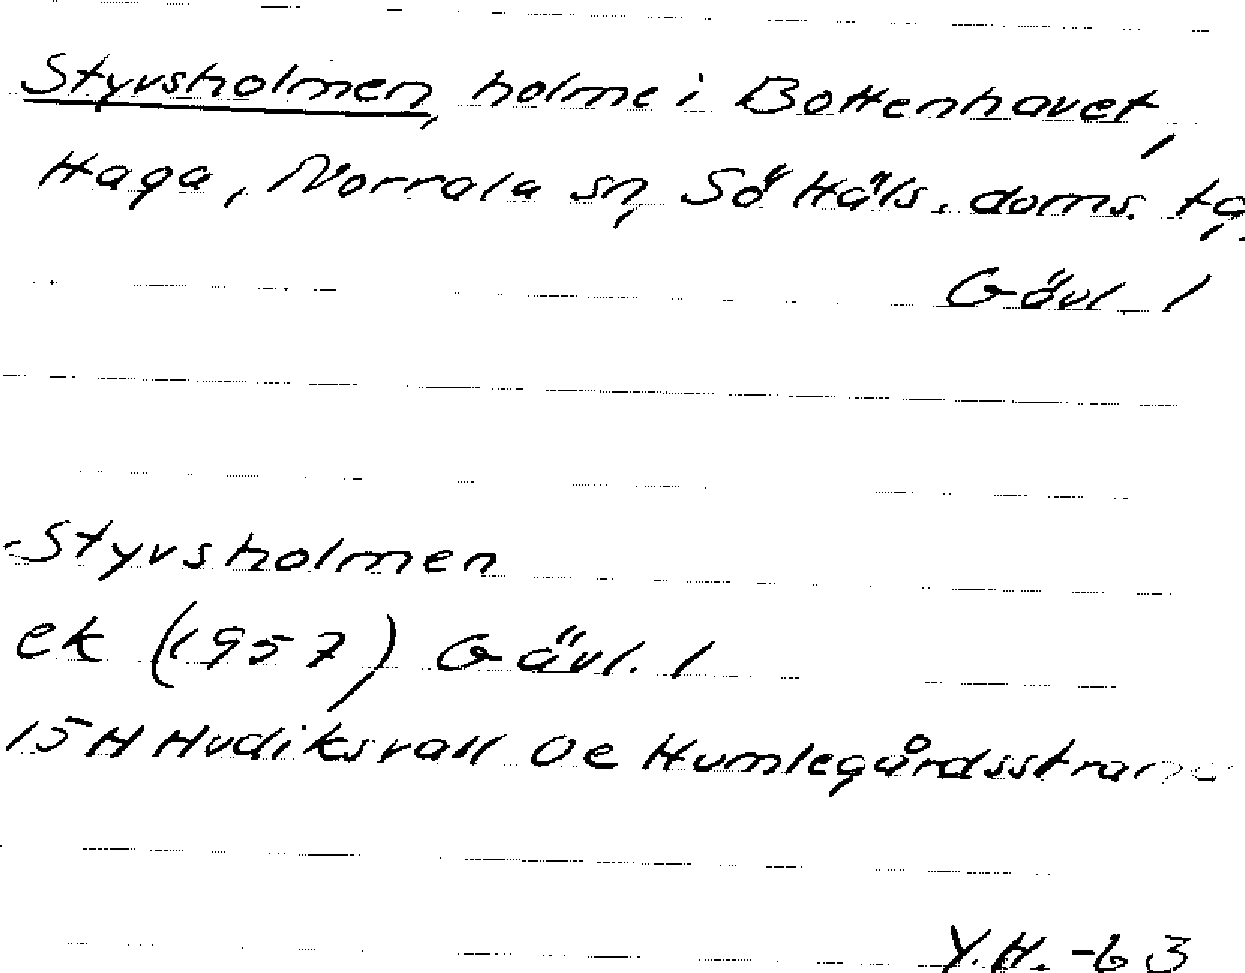 Styvsholmen, holme i Bottenhavet,
Haga, Norrala sn, Sö Häls. doms. tg,
Gävl. l
Styvsholmen
ek (1957) Gävl. l
15 H Hudiksvall 0e Humlegårdsstrand
Y.H. -63